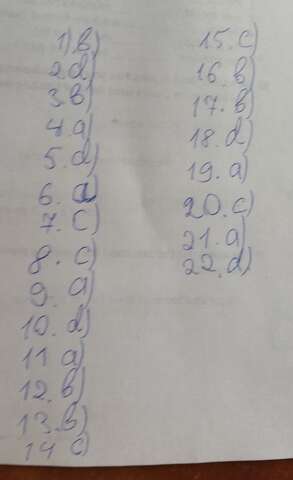 1) b)
2. d)
3. b)
4. a)
5. d)
6. d)
7. c)
8. c)
9. a)
10. d)
11 a)
12. b)
13. b)
14 c)
15. c)
16. b)
17. b)
18. d)
19. a)
20. c)
21. a)
22. d)